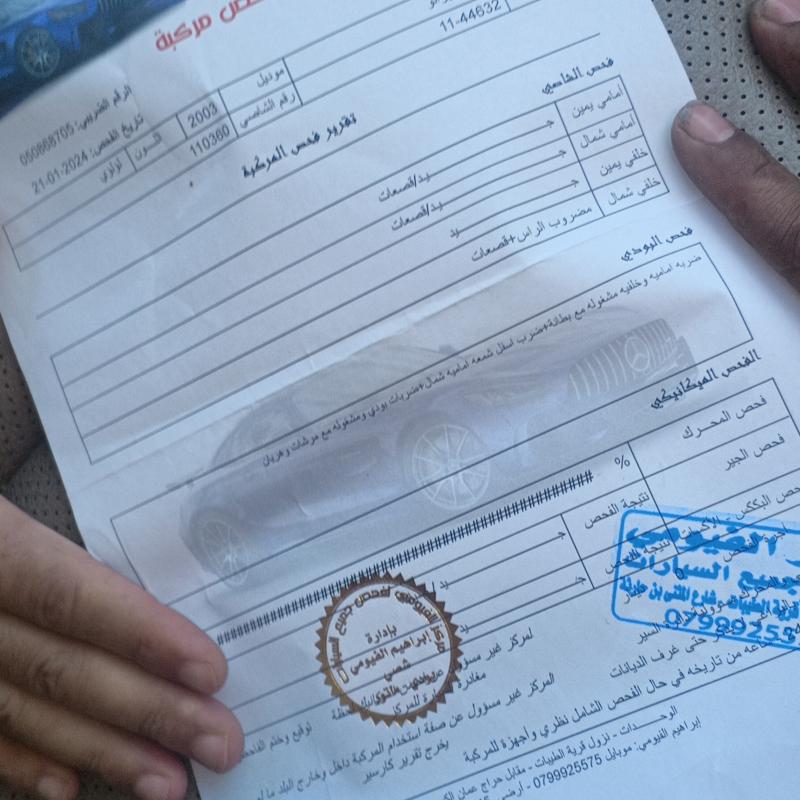 فحص مركبة
11-44632
موديل
2003
رقم الشاصي
110360
الرقم الضريبي: 050868705
تاريخ الفحص: 21-01-2024
اللون
لولوي
تقرير فحص المركبة
فحص الشاصي
أمامي يمين
جيد/قصعات
أمامي شمال
جيد/قصعات
خلفي يمين
جيد
خلفي شمال
مضروب الراس+قصعات
فحص البودي
ضربه اماميه وخلفيه مشغوله مع بطانة+ضرب اسفل شمعه اماميه شمال+ضربات بودي ومشغوله مع مرشات
الفحص الميكانيكي
فحص المحرك
%
##############################
فحص الجير
نتيجة الفحص
جيد
نتيجة الفحص
جيد
الفيومي
جميع السيارات
مركز الفيومي لفحص جميع السيارات
بإدارة
ابراهيم الفيومي
المركز غير مسؤول
حتى غرف الديانات
من تاريخه في حال الفحص الشامل نظري واجهزة للمركبة
المركز غير مسؤول عن صفة استخدام المركبة داخل وخارج البلد
توقيع وختم الفاحص
يخرج تقرير كارسير
الوحدات - نزول قرية الطيبات - مقابل حراج عمان
إبراهيم الفيومي: موبايل 0799925575 - أرضي